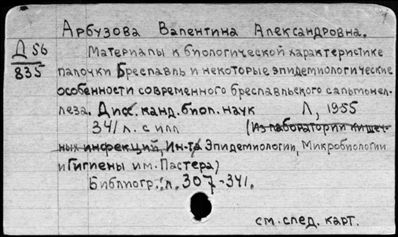 Арбузова Валентина Александровна.
Д 56
835
Материалы к биологической характеристике
палочки Бреславль и некоторые эпидемиологические
особенности современного бреславльского сальмонел-
леза. Дис. канд. биол. наук Л, 1955
341 л. с илл (Из лаборатории кишеч-
ных инфекций, Ин-та Эпидемиологии, Микробиологии
и Гигиены им. Пастера)
Библиогр.: л. 307-341.
см. след. карт.